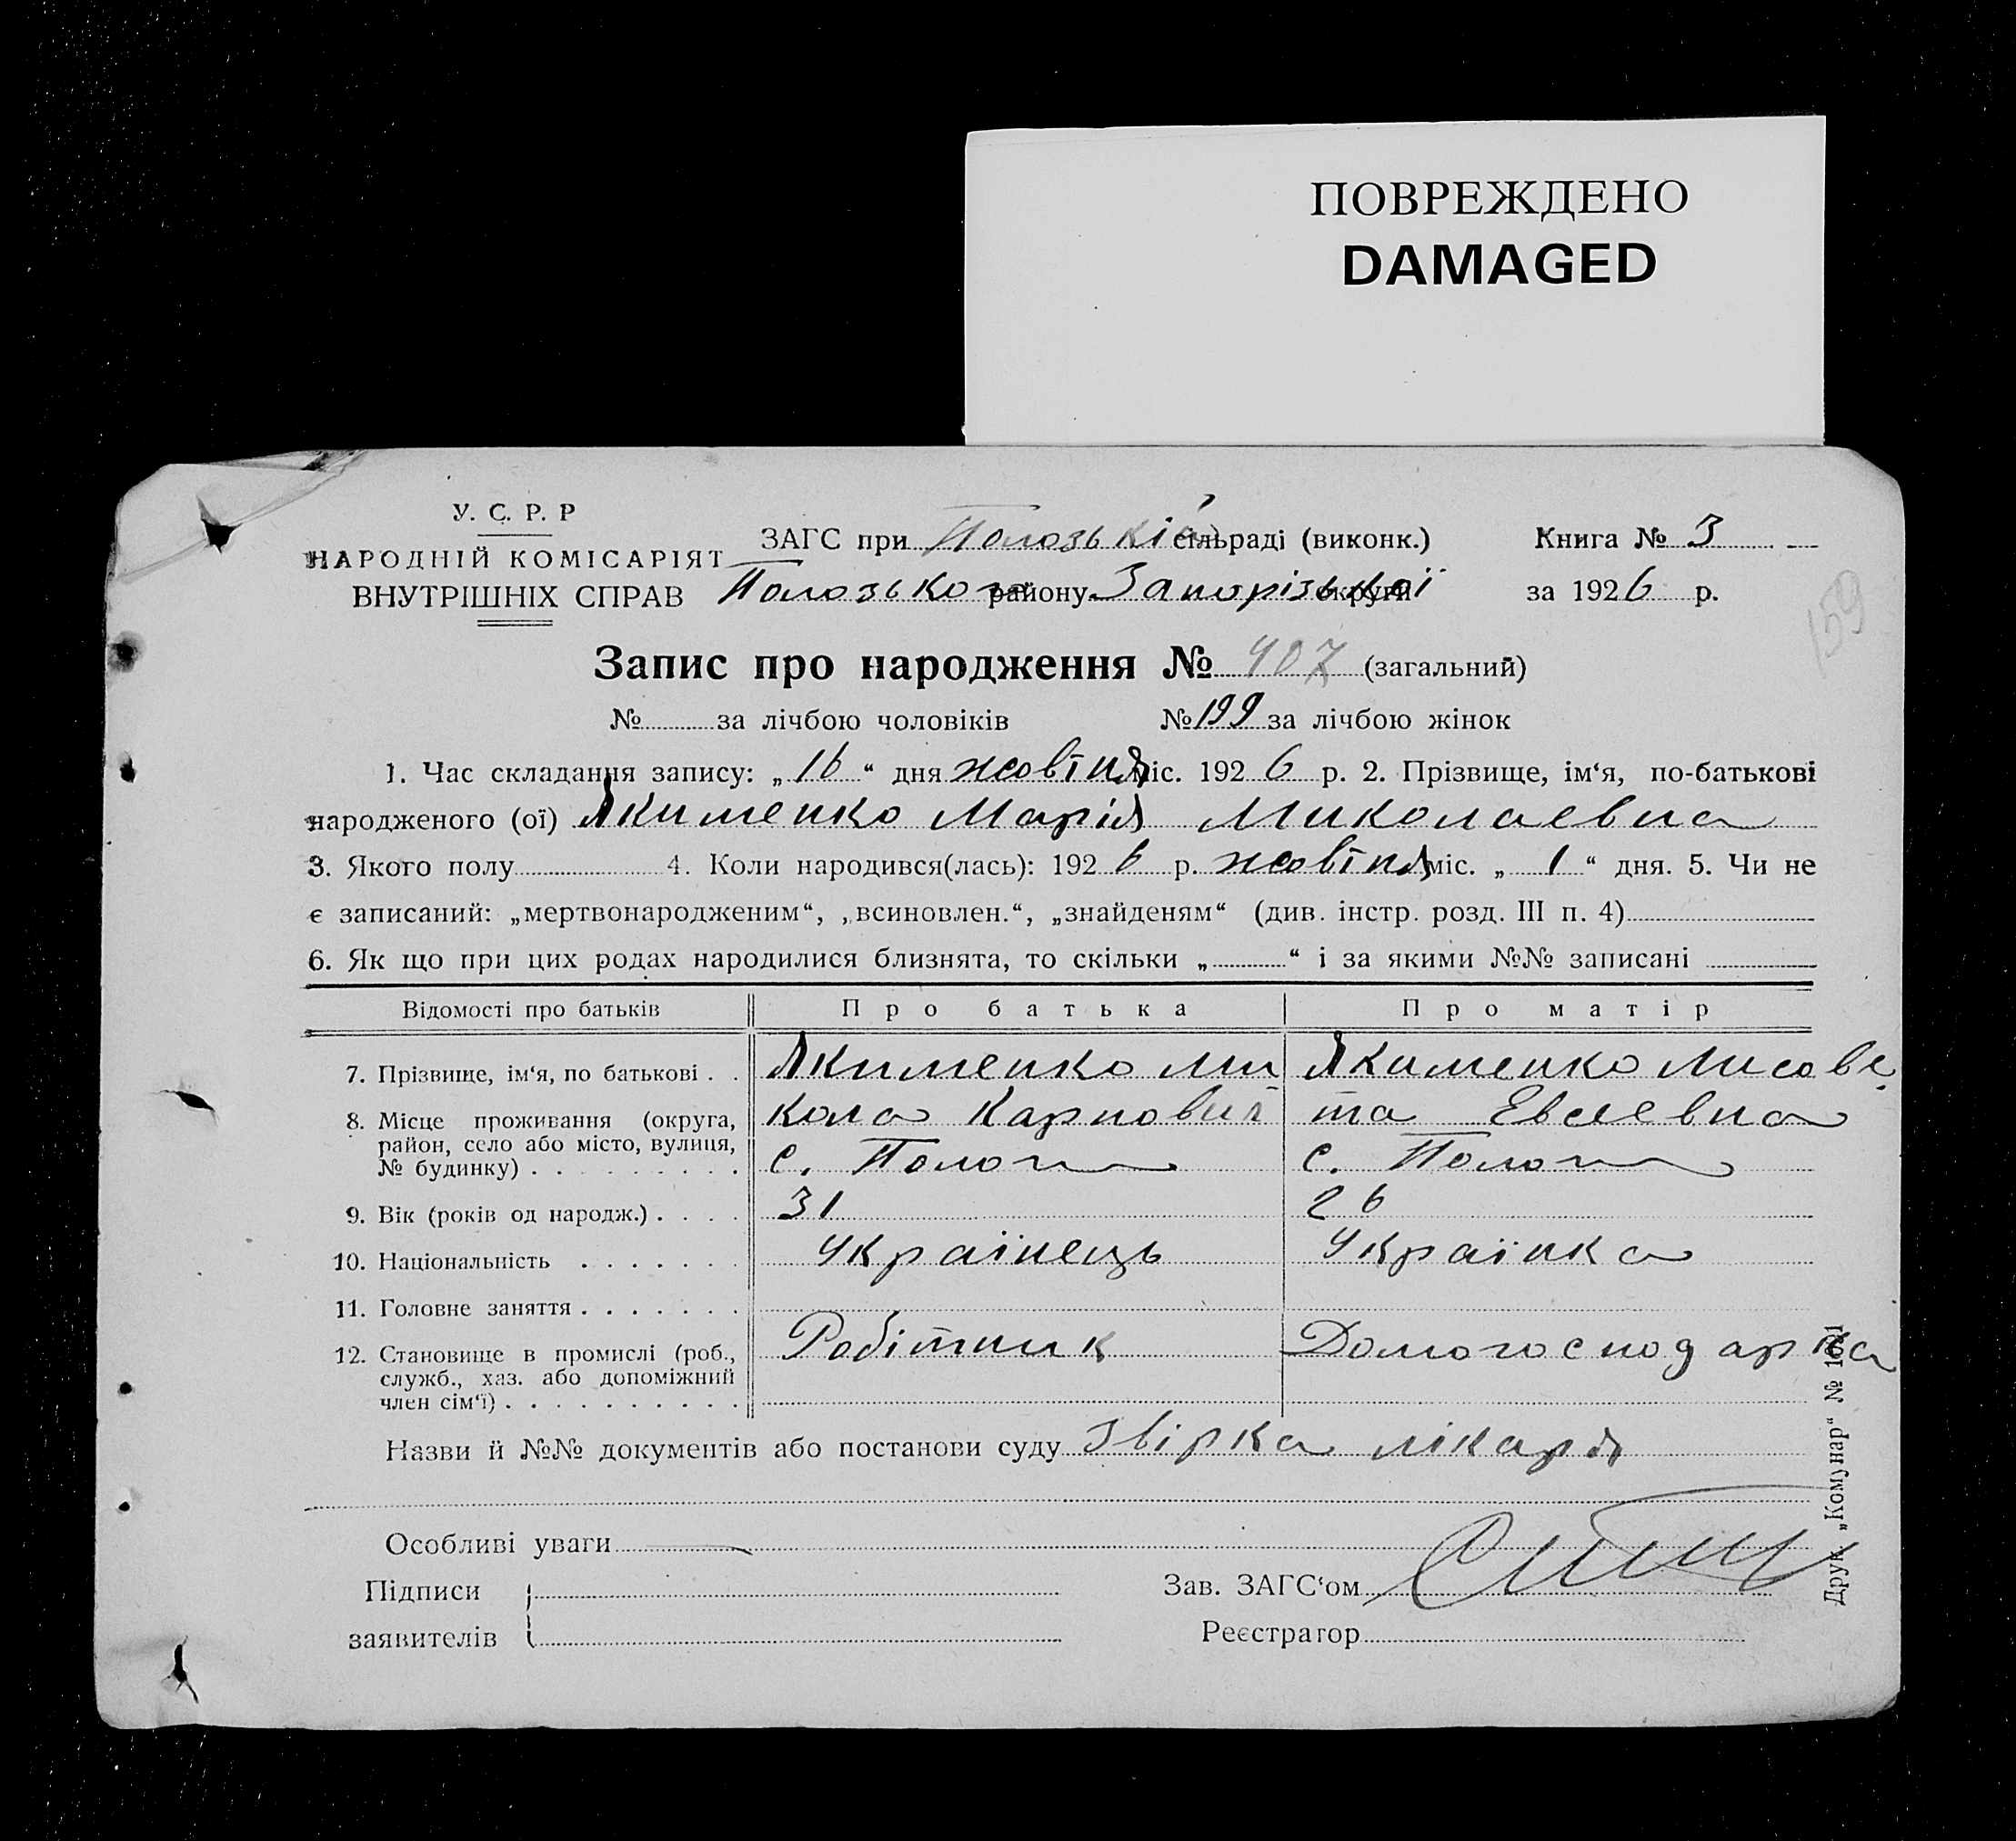 ПОВРЕЖДЕНО
DAMAGED
У. С. Р. Р
НАРОДНІЙ КОМІСАРІЯТ
ВНУТРІШНІХ СПРАВ
ЗАГС при Полозькій сільраді (виконк.)
Полозького району Запорізької округи
Книга № 3
за 1926 р.
159
Запис про народження № 407 (загальний)
№ за лічбою чоловіків № 199 за лічбою жінок
1. Час складання запису: „16“ дня жовтня міс. 1926 р. 2. Прізвище, ім‘я, по-батькові
народженого (ої) Якименко Марія Миколаевна
3. Якого полу 4. Коли народився(лась): 1926 р. жовтня міс. „1“ дня. 5. Чи не
є записаний: „мертвонародженим“, „всиновлен.“, „знайденям“ (див. інстр. розд. III п. 4)
6. Як що при цих родах народилися близнята, то скільки „ “ і за якими №№ записані
Відомості про батьків Про батька Про матір
7. Прізвище, ім‘я, по батькові . . Якименко Ми Якименко Лисове
8. Місце проживання (округа, кола Карпович та Евсеевна
район, село або місто, вулиця,
№ будинку) . . . . . . . . . с. Пологи с. Пологи
9. Вік (років од народж.) . . . . 31 26
10. Національність . . . . . . . Українець Українка
11. Головне заняття . . . . . . .
12. Становище в промислі (роб., Робітник Домогосподарка
служб., хаз. або допоміжний
член сім‘ї) . . . . . . . . . .
Назви й №№ документів або постанови суду звірка лікаря
Особливі уваги
Підписи
заявителів
Зав. ЗАГС‘ом
Реєстратор
Друк. „Комунар“ №